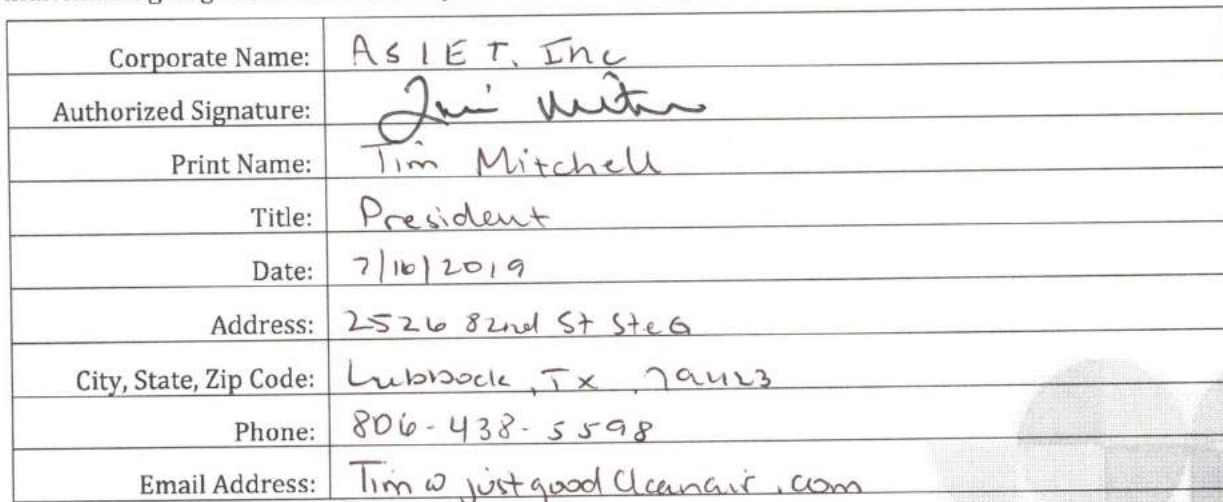 Corporate Name: ASIET, Inc
Authorized Signature:
Print Name: Tim Mitchell
Title: President
Date: 7/16/2019
Address: 2526 82nd St Ste G
City, State, Zip Code: Lubbock, Tx, 79423
Phone: 806-438-5598
Email Address: Tim@justgoodcleanair.com